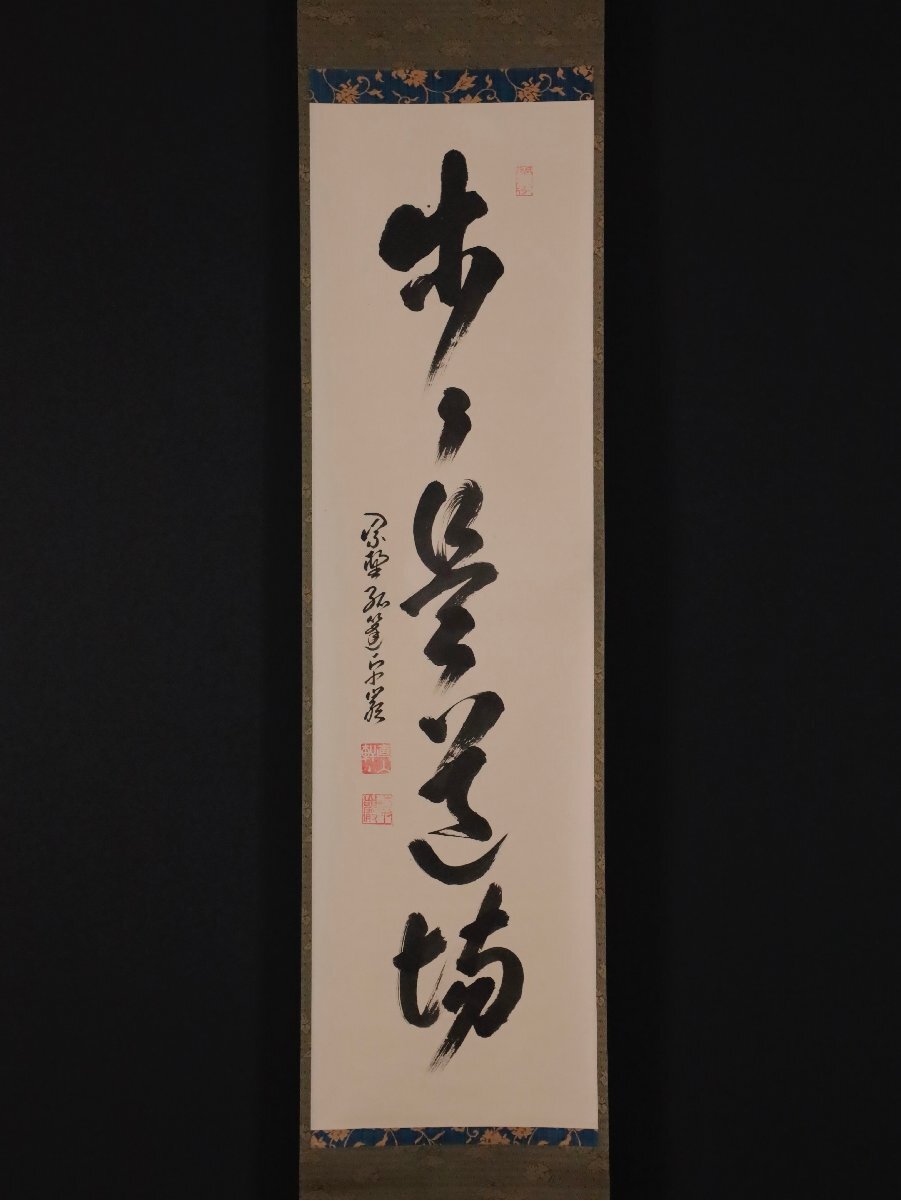 歩々是道場
紫野 孤篷